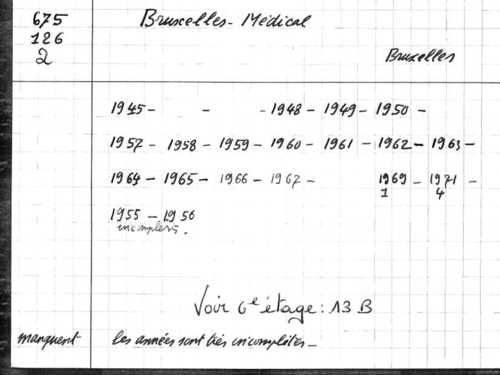 675 Bruxelles-Médical
126
2 Bruxelles
1945 - - - 1948 - 1949 - 1950 -
1957 - 1958 - 1959 - 1960 - 1961 - 1962 - 1963 -
1964 - 1965 - 1966 - 1967 - 1969 - 1971 -
1 4
1955 - 1956
incomplets.
Voir 6e étage: 13 B
manquent les années sont très incomplètes -